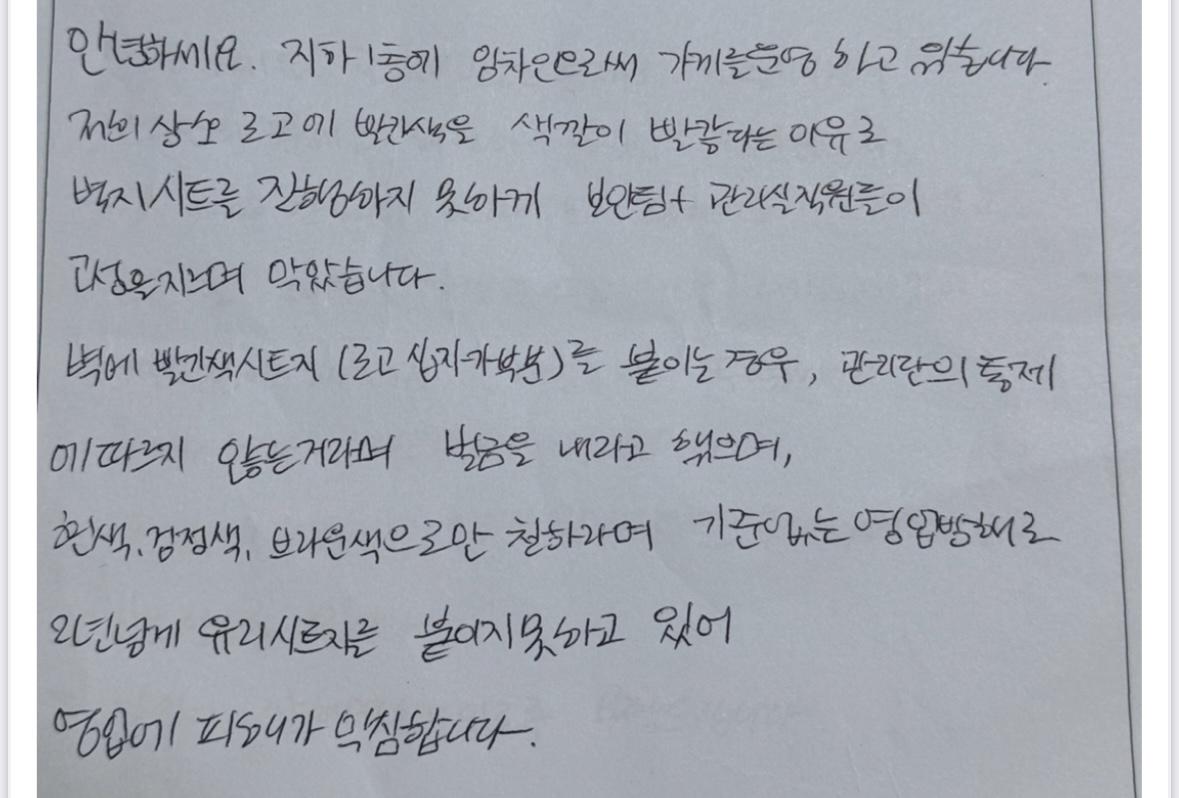 안녕하세요. 지하 1층에 임차인으로써 가게를 운영 하고 있습니다.
저의 상호 로고에 빨간색을 색깔이 빨갛다는 이유로
벽지시트를 진행하지 못하게 보안팀+ 관리실직원들이
고성을지르며 막았습니다.
벽에 빨간색시트지 (로고 십자가부분)를 붙이는 경우, 관리단의 통제
에 따르지 않는거라며 벌금을 내라고 했으며,
흰색, 검정색, 브라운색으로만 칠하라며 기준없는 영업방해로
2년넘게 유리시트지를 붙이지못하고 있어
영업에 피해가 막심합니다.